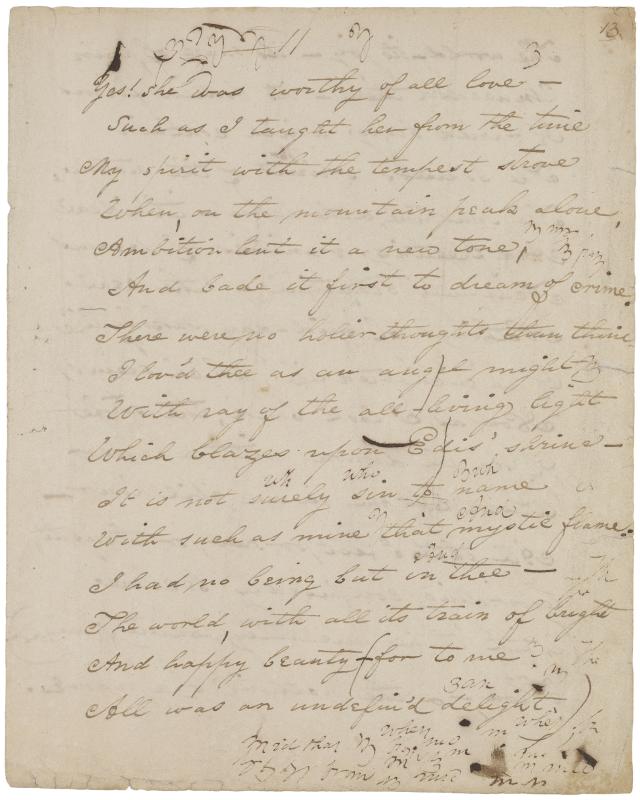 13.
11
3
Yes! she was worthy of all love —
Such as I taught her from the time
My spirit with the tempest strove
When, on the mountain peak alone,
Ambition lent it a new tone,
And bade it first to dream of crime.
There were no holier thoughts than thine
I lov'd thee as an angel might
With ray of the all-living light
Which blazes upon Edis' shrine —
It is not surely sin to name
With such as mine that mystic flame.
And
I had no being but in thee —
The world, with all its train of bright
And happy beauty (for to me
All was an undefin'd delight)
when
Mid that